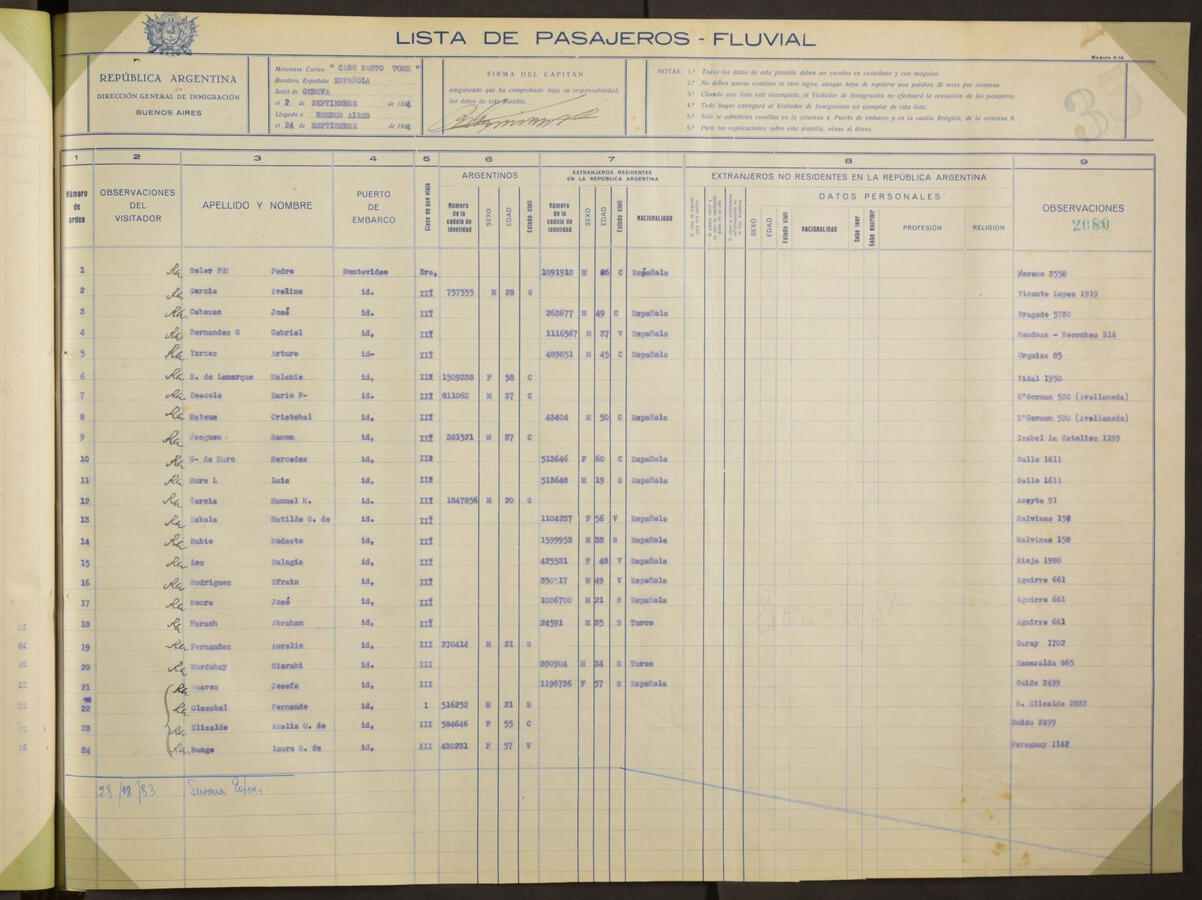 LISTA DE PASAJEROS - FLUVIAL
Modelo 9-16
REPÚBLICA ARGENTINA
DIRECCIÓN GENERAL DE INMIGRACIÓN
BUENOS AIRES
Motonave Correo "CABO SANTO TOME"
Bandera Española ESPAÑOLA
Salió de GENOVA
el 2 de SEPTIEMBRE de 1934
Llegado a BUENOS AIRES
el 24 de SEPTIEMBRE de 1934
FIRMA DEL CAPITÁN
asegurando que ha comprobado bajo su responsabilidad,
los datos de esta planilla.
NOTAS: 1.ª Todos los datos de esta planilla deben ser escritos en castellano y con máquina.
2.ª No deben usarse comillas ni otro signo, aunque haya de repetirse una palabra 30 veces por columnas.
3.ª Cuando una lista esté incompleta, el Visitador de Inmigración no efectuará la revisación de los pasajeros.
4.ª Todo buque entregará al Visitador de Inmigración un ejemplar de esta lista.
5.ª Sólo se admitirán comillas en la columna 4, Puerto de embarco y en la casilla Religión, de la columna 8.
6.ª Para las explicaciones sobre esta planilla, véase al dorso.
35
1 2 3 4 5 6 7 8 9
Número de orden
OBSERVACIONES DEL VISITADOR
APELLIDO Y NOMBRE
PUERTO DE EMBARCO
Clase en que viaja
ARGENTINOS
Número de la cédula de identidad SEXO EDAD Estado civil
EXTRANJEROS RESIDENTES EN LA REPÚBLICA ARGENTINA
Número de la cédula de identidad SEXO EDAD Estado civil NACIONALIDAD
EXTRANJEROS NO RESIDENTES EN LA REPÚBLICA ARGENTINA
DATOS PERSONALES
SEXO EDAD Estado civil NACIONALIDAD Sabe leer Sabe escribir PROFESIÓN RELIGIÓN
OBSERVACIONES
2080
1 Ra Soler Pedro Montevideo 3ra, 1091910 M C Española Moreno 3550
2 Ra Garcia Avelino id. III 757555 M 28 S Vicente Lopes 1919
3 Ra Cabezas José id. III 263677 M 49 C Española Bragado 5730
4 Ra Hernandez G Gabriel id, III 1116567 M 37 V Española Mendoza - Necochea 314
5 Ra Yarnez Arturo id- III 489851 M 45 C Española Urquiza 85
6 Ra B. de Lamarque Melanie id, III 1509338 F 58 C Vidal 1950
7 Ra Dario F- id, III 811063 M 37 C O'Gorman 530 (Avellaneda)
8 Ra Mateus Cristobal id, III 43404 M 50 C Española O'Gorman 530 (Avellaneda)
9 Ra Jueguen Ramon id, III 381521 M 37 C Isabel La Catolica 1199
10 Ra M- de Muro Mercedes id, III 513646 F 60 C Española Gallo 1611
11 Ra Muro L Luis id, III 513648 M 19 S Española Gallo 1611
12 Ra Garcia Manuel R. id. III 1847856 M 20 S Acoyte 91
13 Ra Zabala Matilde G. de id. III 1104237 F 56 V Española Malvinas 158
14 Ra Rubio Modesto id, III 1599953 M 33 S Española Malvinas 158
15 Ra Los Eulogia id, III 425531 F 48 V Española Rioja 1980
16 Ra Rodriguez Efrain id, III 350517 M 49 V Española Aguirre 661
17 Ra Roura José id, III 1006700 M 21 S Española Aguirre 661
18 Ra Farach Abraham id, III 24591 M 35 S Turco Aguirre 661
19 Ra Fernandez Aurelio id, III 370414 M 21 S Garay 1702
20 Ra Morduhay Mizrahi id. III 890904 M 34 S Turco Esmeralda 865
21 Ra Suarez Josefa id, III 1196736 F 57 S Española Guido 2499
22 Ra Glassbal Fernando id, 1 516252 M 21 S R. Elizalde 2833
23 Ra Elizalde Amelia O. de id, III 584646 F 55 C Guido 2499
24 Ra Bunge Laura O. de id, III 430231 F 57 V Paraguay 1142
28/12/83